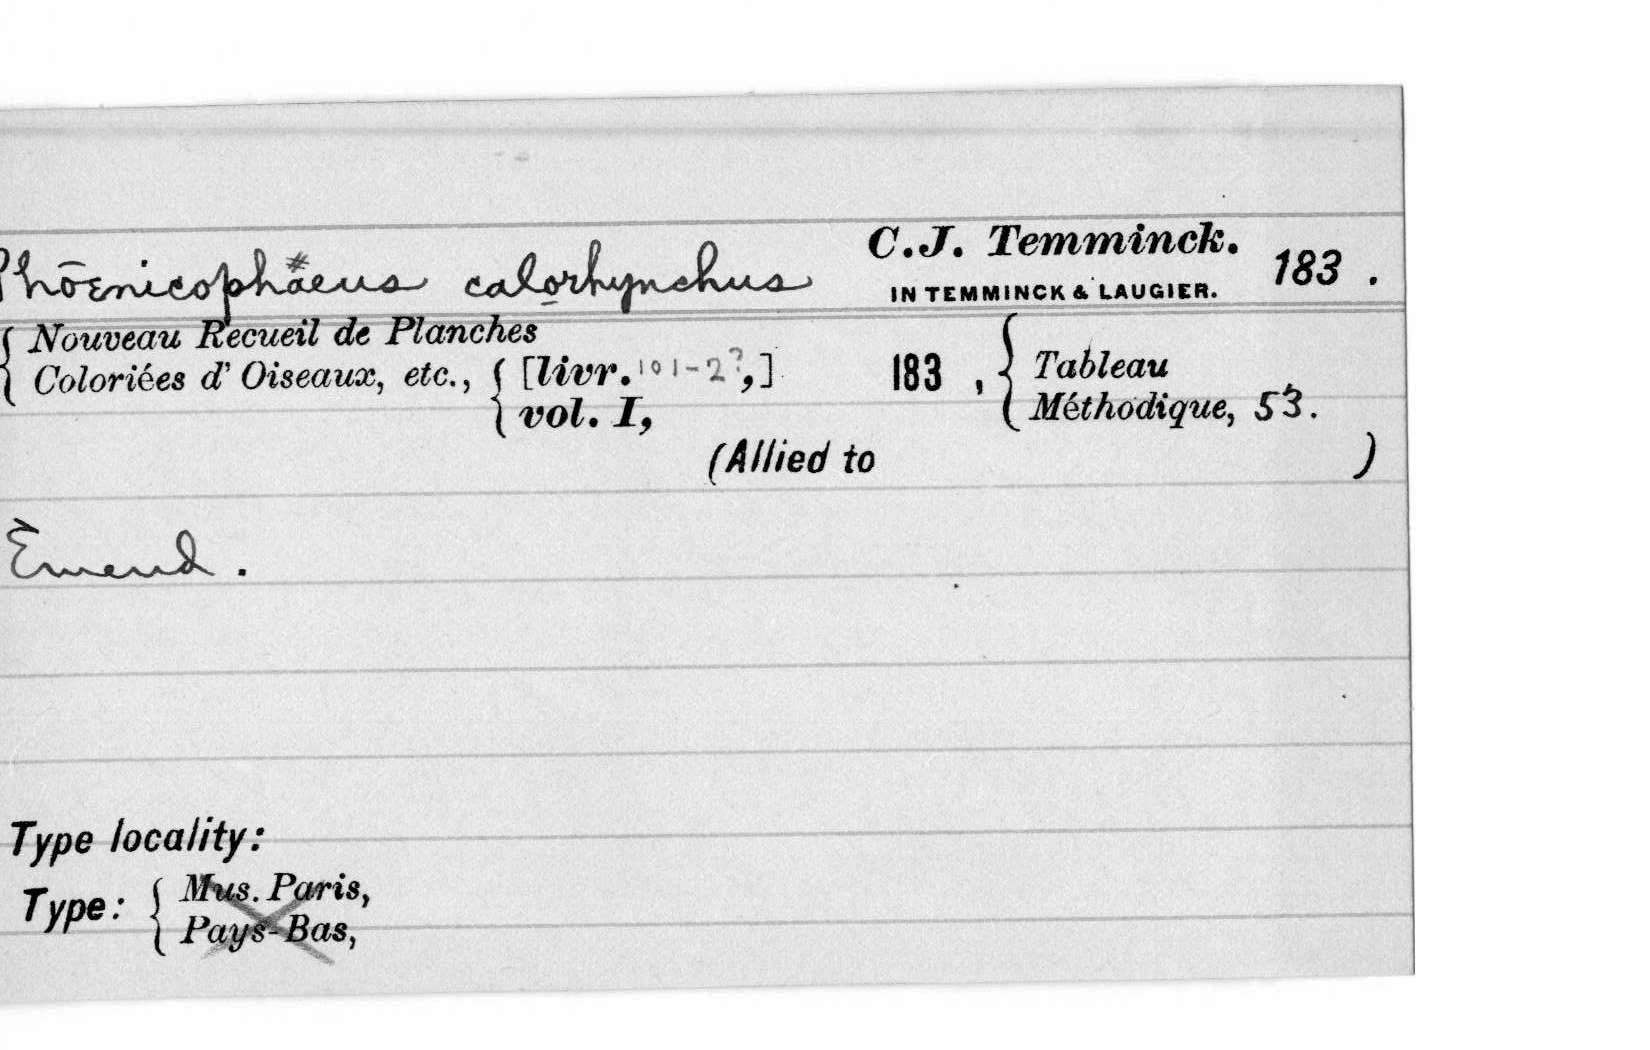 Phoenicophaeus calorhynchus C.J. Temminck. 183 .
IN TEMMINCK & LAUGIER.
Nouveau Recueil de Planches
Coloriées d' Oiseaux, etc., [livr. 101-2?,] 183 , Tableau
vol. I, Méthodique, 53.
(Allied to )
Emend.
Type locality:
Type: Mus. Paris,
Pays-Bas,